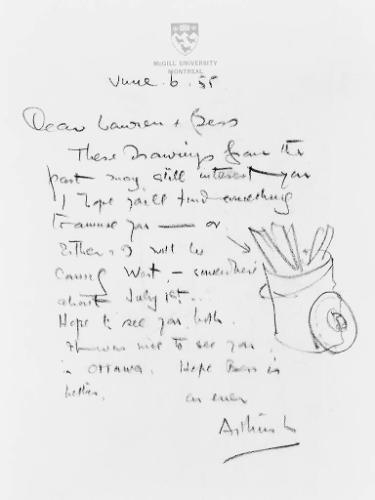 McGILL UNIVERSITY
MONTREAL
June . 6 . 55
Dear Lawren + Bess
These Drawings from the
past may still interest you
I hope you'll find something
to amuse you — or
Esther + I will be
Coming West, – somewhere
about July 1st..
Hope to see you both.
It was nice to see you
in OTTAWA. Hope Bess is
better.
as ever
Arthur L